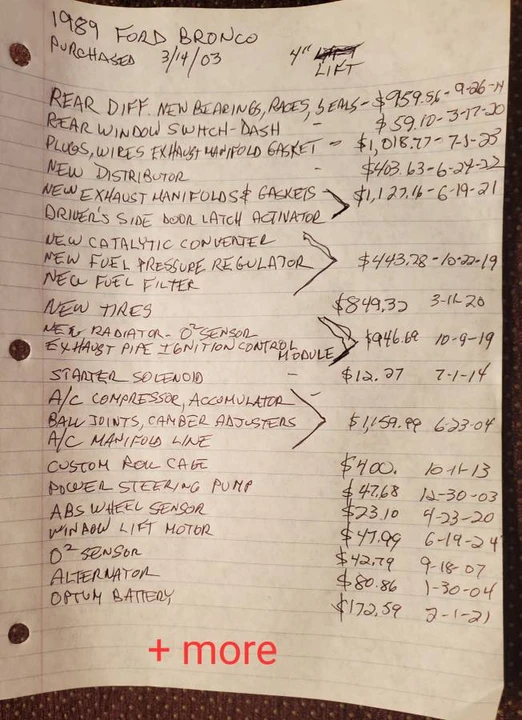 1989 FORD BRONCO
PURCHASED 3/14/03 4" LIFT
REAR DIFF. NEW BEARINGS, RACES, SEALS - $959.56 - 9-26-14
REAR WINDOW SWITCH-DASH - $59.10 - 3-17-20
PLUGS, WIRES EXHAUST MANIFOLD GASKET - $1,018.77 - 7-5-23
NEW DISTRIBUTOR - $403.63 - 6-24-22
NEW EXHAUST MANIFOLDS & GASKETS $1,127.16 - 6-19-21
DRIVER'S SIDE DOOR LATCH ACTIVATOR
NEW CATALYTIC CONVERTER
NEW FUEL PRESSURE REGULATOR $443.28 - 10-22-19
NEW FUEL FILTER
NEW TIRES $849.32 3-12-20
NEW RADIATOR - O2 SENSOR $946.69 10-9-19
EXHAUST PIPE IGNITION CONTROL MODULE
STARTER SOLENOID - $12.27 7-1-14
A/C COMPRESSOR, ACCUMULATOR
BALL JOINTS, CAMBER ADJUSTERS $1,159.99 6-23-04
A/C MANIFOLD LINE
CUSTOM ROLL CAGE $400. 10-11-13
POWER STEERING PUMP $47.68 12-30-03
ABS WHEEL SENSOR $23.10 4-23-20
WINDOW LIFT MOTOR $47.99 6-19-24
O2 SENSOR $42.79 9-18-07
ALTERNATOR $80.86 1-30-04
OPTUM BATTERY $172.59 2-1-21
+ more